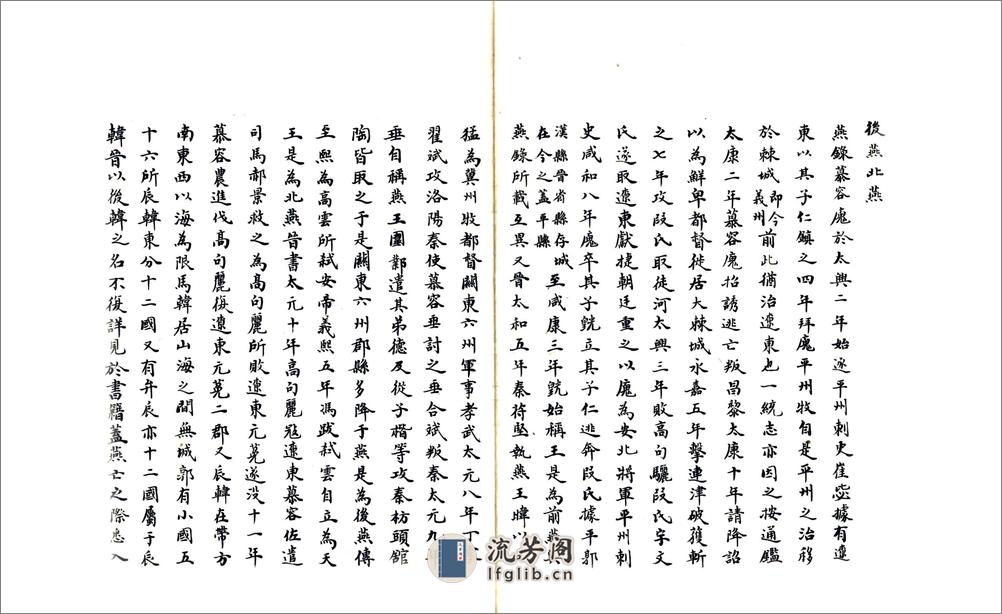 後燕北燕
燕錄慕容廆於太興二年始逐平州刺史崔毖據有遼
東以其子仁鎮之四年拜廆平州牧自是平州之治移
於棘城即今義州前此猶治遼東也一統志亦因之按通鑑
太康二年慕容廆招誘逃亡叛昌黎太康十年請降詔
以為鮮卑都督徙居大棘城永嘉五年擊連津破獲斬
之七年攻段氏取徒河太興三年敗高句驪段氏宇文
氏遂取遼東獻捷朝廷重之以廆為安北將軍平州刺
史咸和八年廆卒其子皝立其子仁逃奔段氏據平郭
漢縣晉省縣存城在今之蓋平縣至咸康三年皝始稱王是為前燕與
燕錄所載互異又晉太和五年秦苻堅執燕王暐以
猛為冀州牧都督關東六州軍事孝武太元八年丁
翟斌攻洛陽秦使慕容垂討之垂合斌叛秦太元九
垂自稱燕王圍鄴遣其弟德及從子楷等攻秦枋頭館
陶皆取之于是關東六州郡縣多降于燕是為後燕傳
至熙為高雲所弒安帝義熙五年馮跋弒雲自立為天
王是為北燕晉書太元十年高句麗寇遼東慕容佐遣
司馬郝景救之為高句麗所敗遼東元菟遂没十一年
慕容農進伐高句麗復遼東元菟二郡又辰韓在帶方
南東西以海為限馬韓居山海之間無城郭有小國五
十六所辰韓東分十二國又有弁辰亦十二國屬于辰
韓晉以後韓之名不復詳見於書籍蓋燕亡之際悉入
流芳阁
lfglib.cn